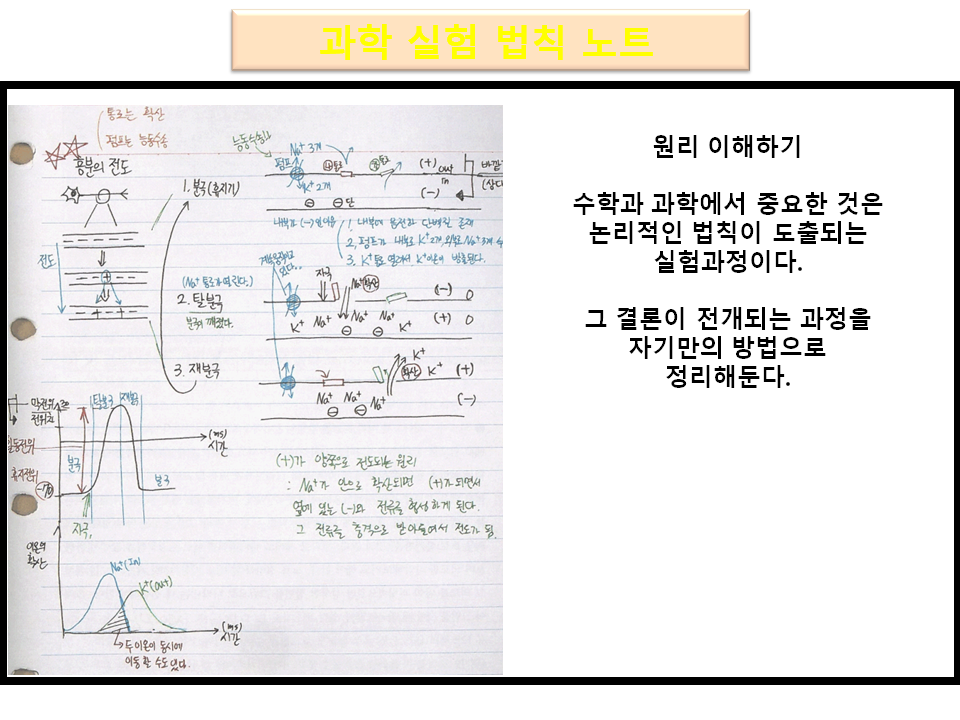 과학 실험 법칙 노트
통로는 확산
펌프는 능동수송
흥분의 전도
1. 분극(휴지기)
전도
(Na⁺통로가 열린다.)
2. 탈분극
분극이 깨졌다.
3. 재분극
능동수송
Na⁺ 3개
펌프
K⁺ 2개
(+) out
in
(-)
⊖ ⊖ 단
내부가 (-)
1. 내부에 음전하 단백질 존재
2. 펌프가 내부로 K⁺ 2개, 외부로 Na⁺ 3개
3. K⁺통로 열려서 K⁺이온이 방출된다.
자극
Na⁺ 확산
(-) 0
K⁺ Na⁺ Na⁺ Na⁺ K⁺ (+) 0
⊖ ⊖
K⁺
확산 K⁺ (+)
Na⁺ Na⁺ Na⁺ (-)
⊖ ⊖
막전위
전위차
탈분극 재분극
(ms)
시간
활동전위
분극
휴지전위
-70
분극
자극
(+)가 양쪽으로 전도되는 원리
: Na⁺가 안으로 확산되면 (+)가 되면서
옆에 있는 (-)와 전류를 형성하게 된다.
그 전류를 충격으로 받아들여서 전도가 됨.
이온의
확산
Na⁺(In)
K⁺(out)
(ms)
시간
두 이온이 동시에
이동 할 수도 있다.
원리 이해하기
수학과 과학에서 중요한 것은
논리적인 법칙이 도출되는
실험과정이다.
그 결론이 전개되는 과정을
자기만의 방법으로
정리해둔다.